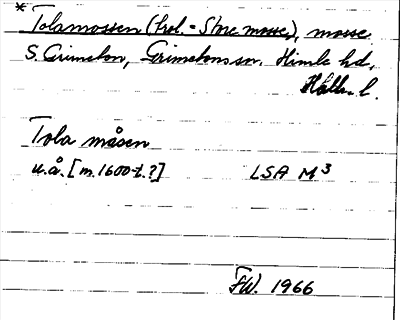 * Tolamossen (trol. = Store mosse), mosse
S. Grimeton, Grimetons sn. Himle hd,
Hall. l.
Tola måsen
u.å. [m. 1600-t.?] LSA M³
FW. 1966